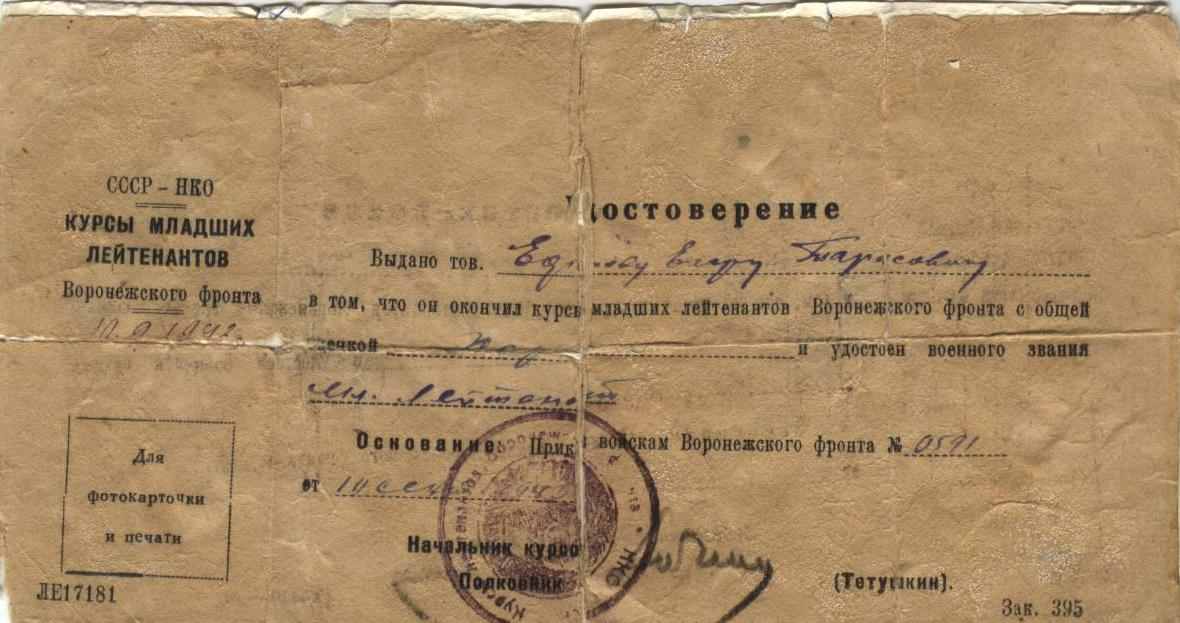 СССР – НКО
КУРСЫ МЛАДШИХ
ЛЕЙТЕНАНТОВ
Воронежского фронта
Для
фотокарточки
и печати
ЛЕ17181
Удостоверение
Выдано тов. Егору Тарасовичу
в том, что он окончил курсы младших лейтенантов Воронежского фронта с общей
и удостоен военного звания
Мл. Лейтенант
Основание Приказ войскам Воронежского фронта № 0591
от
Начальник курсов
Полковник (Тетушкин).
Зак. 395